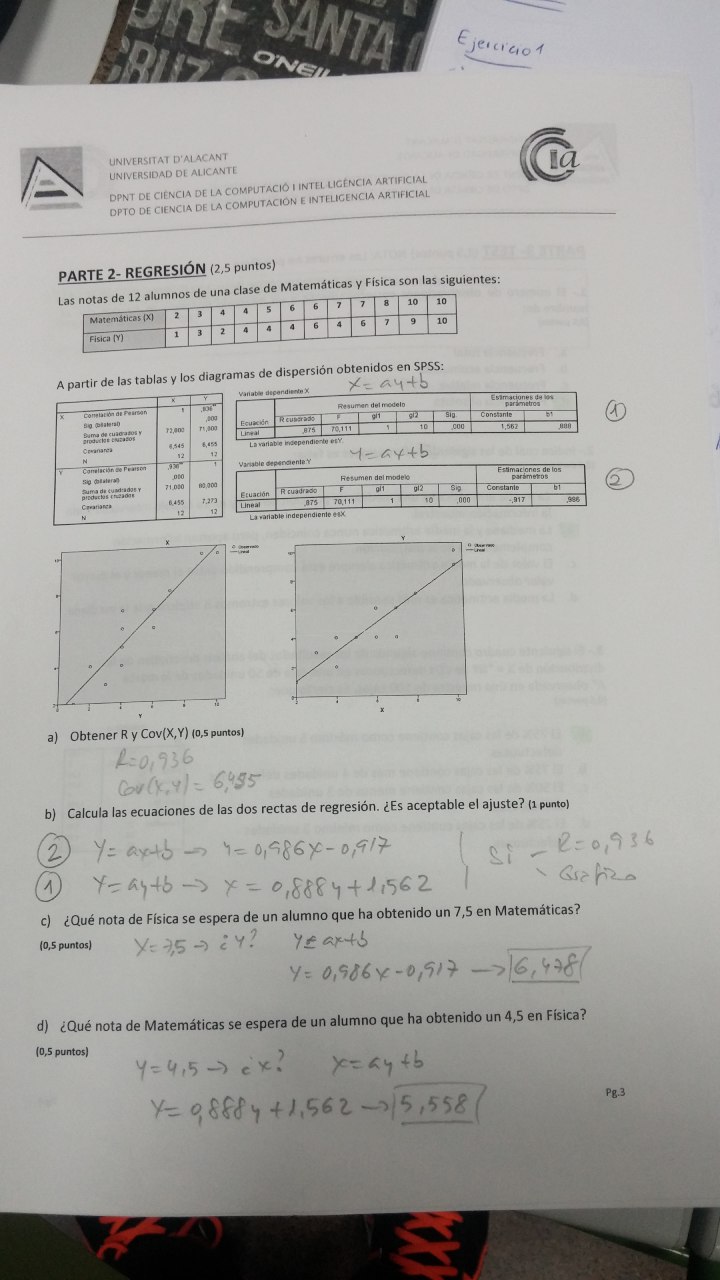 URE SANTA
CRUZ
O'NEILL
Ejercicio 1
UNIVERSITAT D'ALACANT
UNIVERSIDAD DE ALICANTE
DPNT DE CIÈNCIA DE LA COMPUTACIÓ I INTEL·LIGÈNCIA ARTIFICIAL
DPTO DE CIENCIA DE LA COMPUTACIÓN E INTELIGENCIA ARTIFICIAL
ia
PARTE 2- REGRESIÓN (2,5 puntos)
Las notas de 12 alumnos de una clase de Matemáticas y Física son las siguientes:
Matemáticas (X) 2 3 4 4 5 6 6 7 7 8 10 10
Física (Y) 1 3 2 4 4 4 6 4 6 7 9 10
A partir de las tablas y los diagramas de dispersión obtenidos en SPSS:
X Y
X Correlación de Pearson 1 ,936**
Sig. (bilateral) ,000
Suma de cuadrados y productos cruzados 72,000 71,000
Covarianza 6,545 6,455
N 12 12
Y Correlación de Pearson ,936** 1
Sig. (bilateral) ,000
Suma de cuadrados y productos cruzados 71,000 80,000
Covarianza 6,455 7,273
N 12 12
Variable dependiente:X
X = ay+b
Ecuación Resumen del modelo Estimaciones de los parámetros
R cuadrado F gl1 gl2 Sig. Constante b1
Lineal ,875 70,111 1 10 ,000 1,562 ,888
La variable independiente esY.
1
Y = ax+b
Variable dependiente:Y
Ecuación Resumen del modelo Estimaciones de los parámetros
R cuadrado F gl1 gl2 Sig. Constante b1
Lineal ,875 70,111 1 10 ,000 -,917 ,986
La variable independiente esX.
2
X
Observado
Lineal
Y
Y
Observado
Lineal
X
a) Obtener R y Cov(X,Y) (0,5 puntos)
R=0,936
Cov(X,Y) = 6,455
b) Calcula las ecuaciones de las dos rectas de regresión. ¿Es aceptable el ajuste? (1 punto)
2 Y= ax+b → Y=0,986X-0,917
1 Y= ay+b → X = 0,888y+1,562
Sí - R=0,936
Gráfico
c) ¿Qué nota de Física se espera de un alumno que ha obtenido un 7,5 en Matemáticas?
(0,5 puntos)
X=7,5 → ¿Y? Y= ax+b
Y= 0,986X-0,917 → 6,478
d) ¿Qué nota de Matemáticas se espera de un alumno que ha obtenido un 4,5 en Física?
(0,5 puntos)
Y=4,5 → ¿X? X= ay+b
Y= 0,888y+1,562 → 5,558
Pg.3